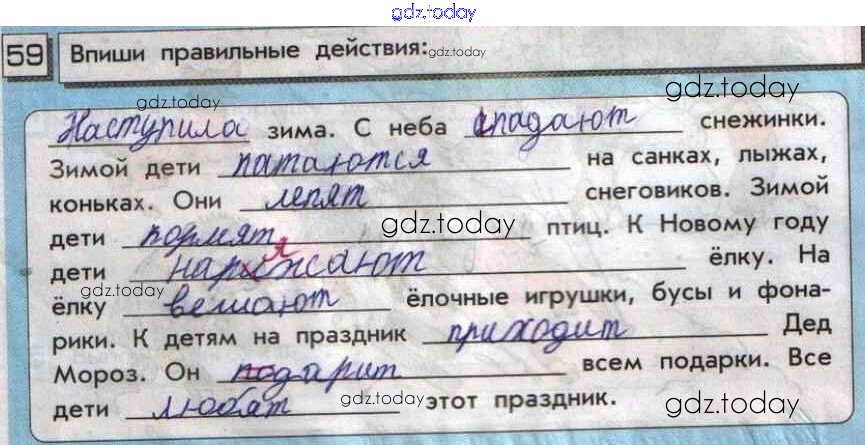 gdz.today
59 Впиши правильные действия: gdz.today
gdz.today gdz.today
Наступила зима. С неба спадают снежинки.
Зимой дети катаются на санках, лыжах,
коньках. Они лепят снеговиков. Зимой
gdz.today
дети кормят птиц. К Новому году
дети наряжают ёлку. На
gdz.today
ёлку вешают ёлочные игрушки, бусы и фона-
рики. К детям на праздник приходит Дед
Мороз. Он подарит всем подарки. Все
дети любят gdz.today этот праздник.
gdz.today